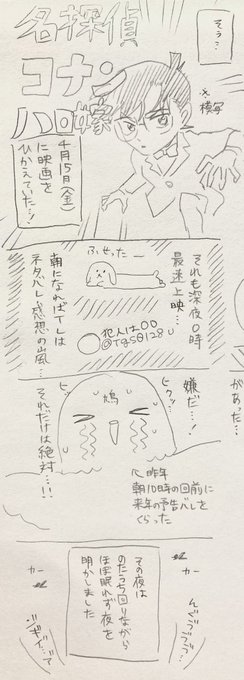 そう…
名探偵
コナン
ハロ嫁
※模写
4月15日(金)
に映画を
ひかえていた…!
それも深夜0時
最速上映…
ふせった―
犯人は〇〇
朝になればTLは
ネタバレ感想の嵐…
があった…
嫌だ…!
ヒクッ…
鳩
ヒッ
それだけは絶対…!!
昨年
朝10時の回前に
来年の予告バレを
くらった
その夜は
のたうち回りながら
ほぼ眠れず夜を
明かしました
カー
カー
んぐうづづ…